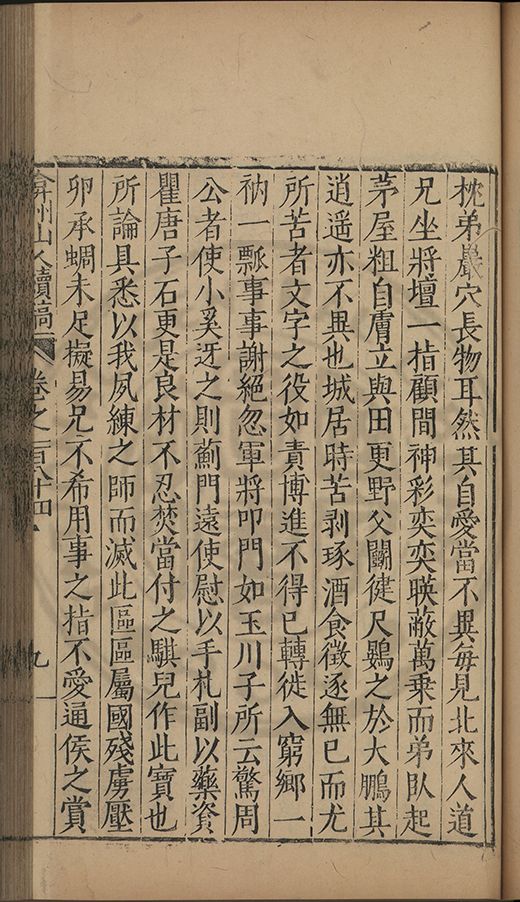 枕弟嚴穴長物耳然其自愛當不異每見北來人道
兄坐將壇一指顧間神彩奕奕暎蔽萬乗而弟臥起
茅屋粗自膚立與田更野父關徤尺鷃之於大鵬其
逍遥亦不異也城居時苦剥琢酒食徵逐無已而尤
所苦者文字之役如責博進不得已轉徙入窮鄉一
衲一瓢事事謝絕忽軍將叩門如玉川子所云驚周
公者使小奚迓之則薊門遠使慰以手札副以藥資
瞿唐子石更是良材不忍焚當付之騏兒作此寶也
所論具悉以我夙練之師而滅此區區屬國殘虜壓
卵承蜩未足擬易兄不希用事之指不愛通侯之賞
弇州山人續稿 卷之一百八十四 九